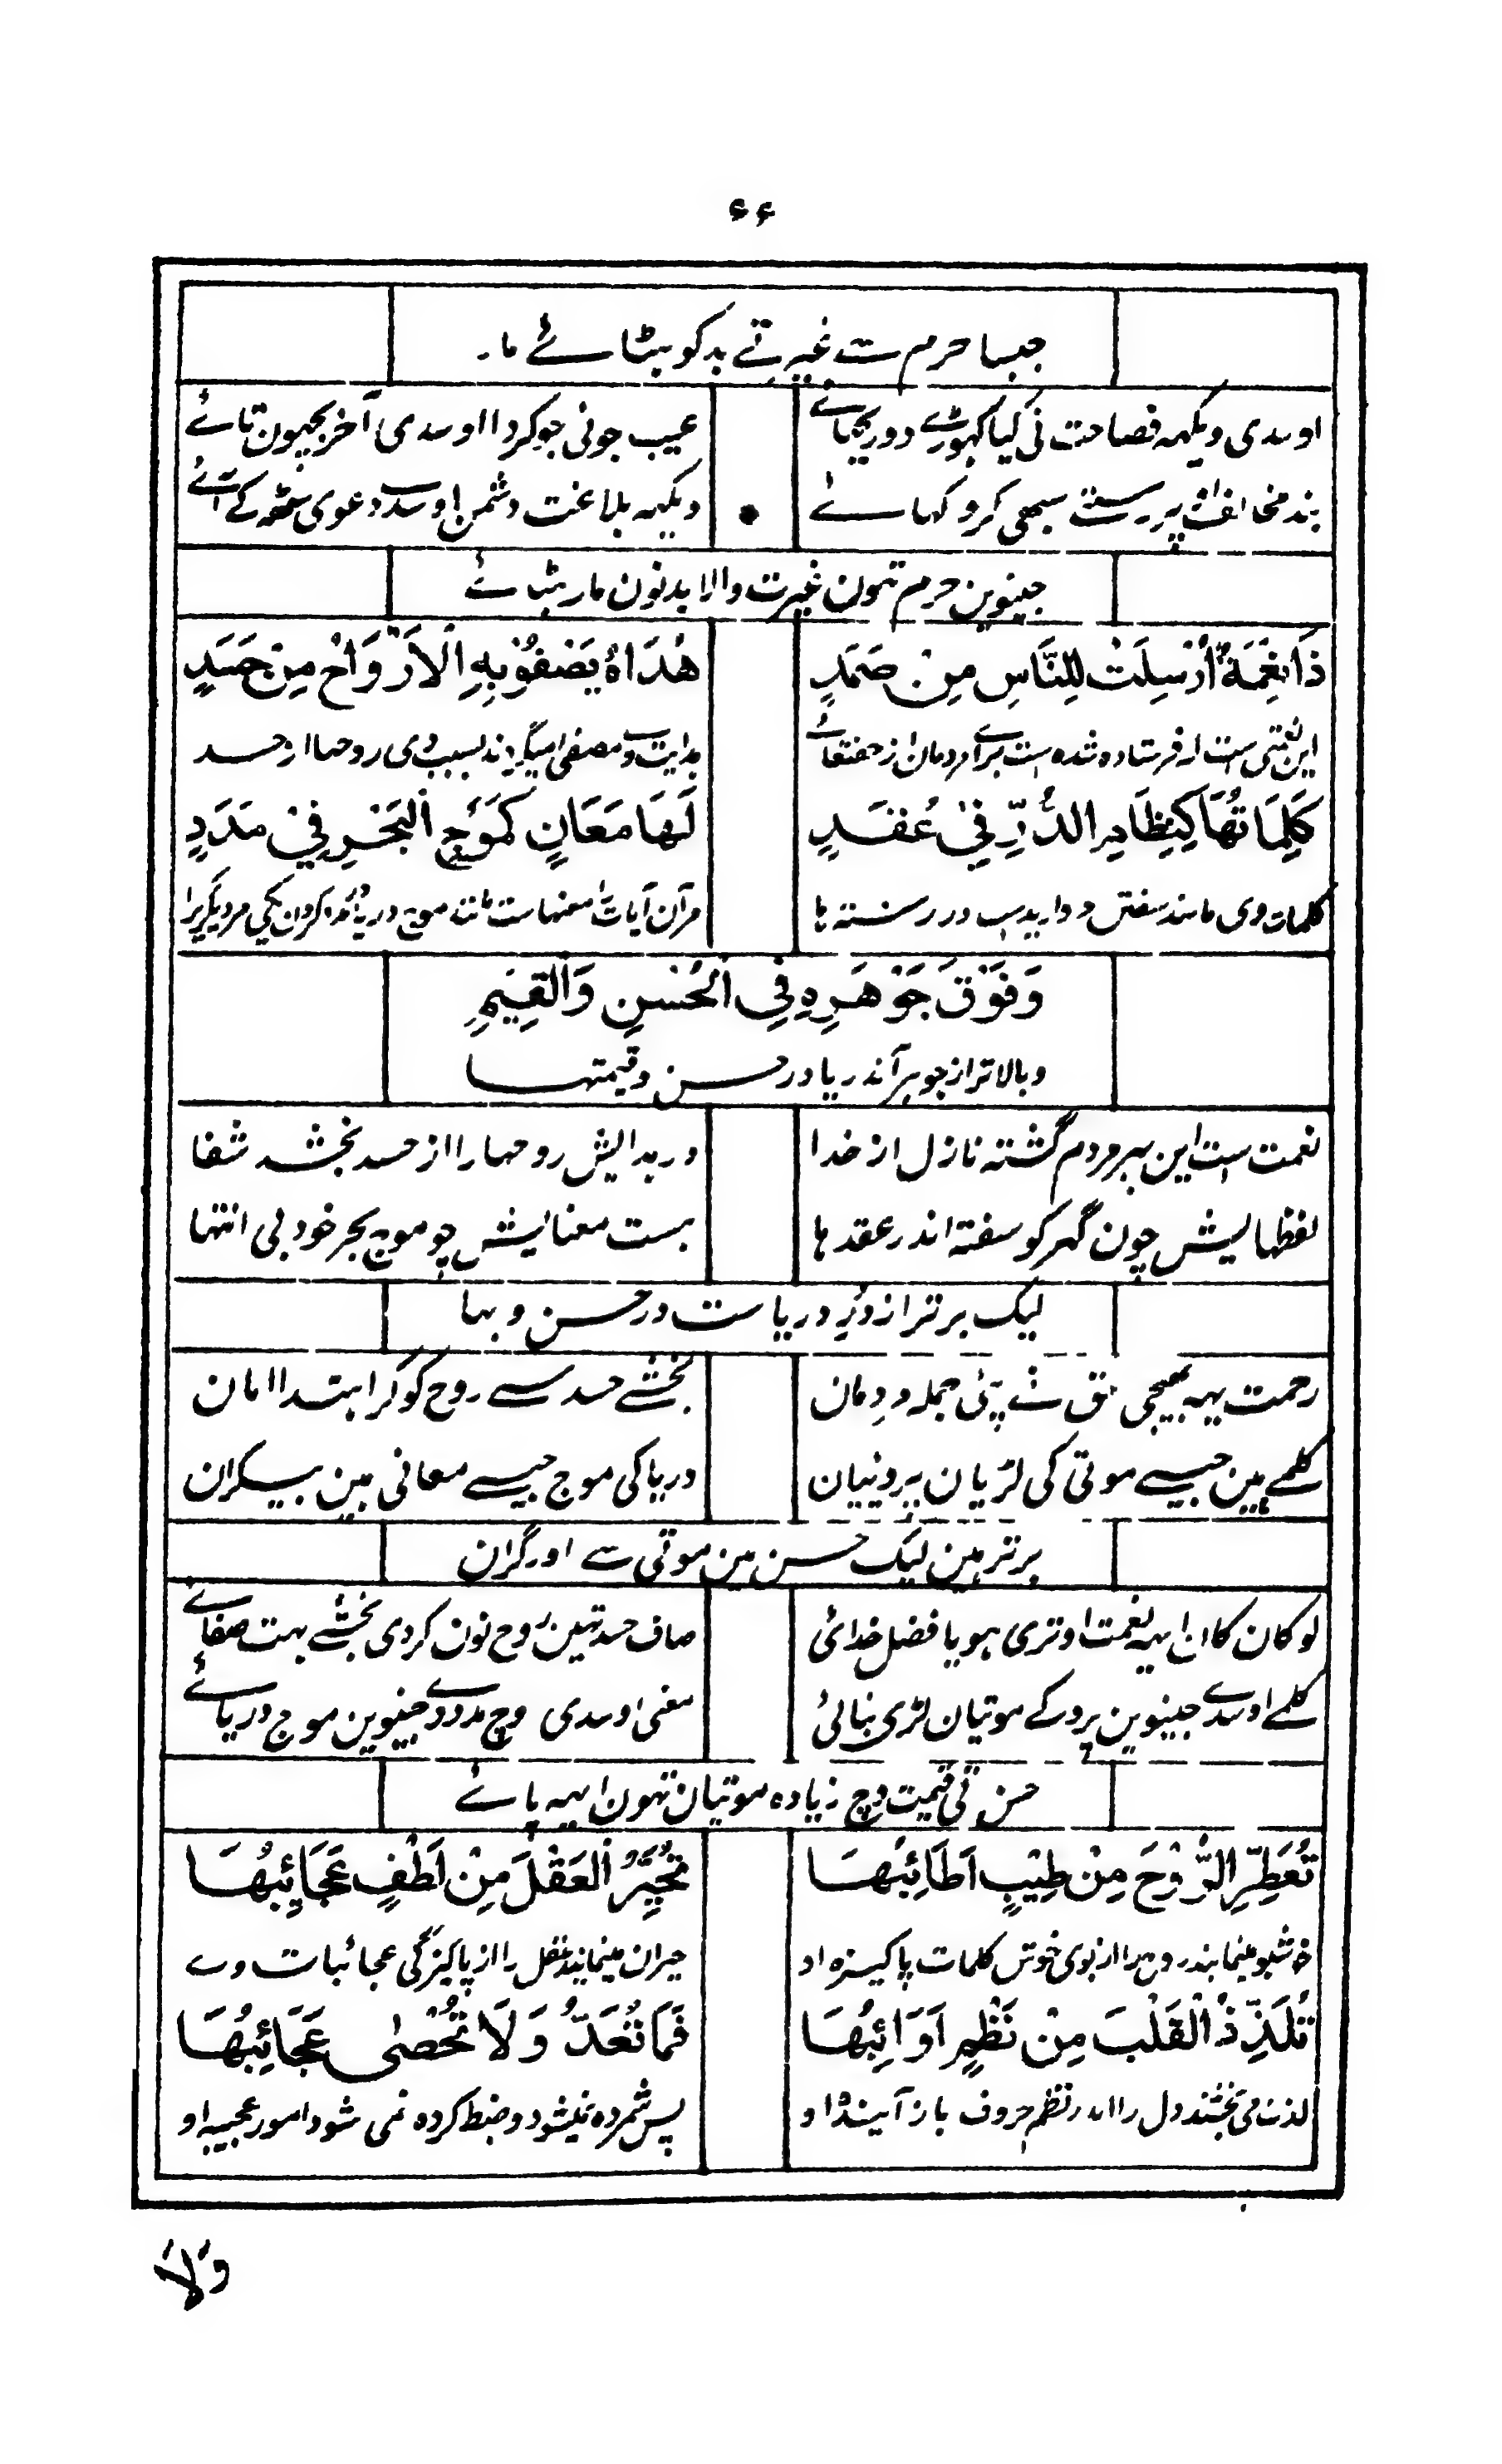 ۶۶
جیسا حرم ست غیرتے بد کو ہٹائے ما۔
اوسدی ویکہہ فصاحت نی کیا کہوڑے دور بھجائے
عیب جوئی جو کردا اوسدی آخر بجہون تائے
بند مخالف پریت سبھی کرو کہائے
ویکہہ بلاغت دشمن اوسدے دعوی مٹھہ کے آئے
جینوین حرم تہون غیرت والا بدنون مار ہٹائے
ذَا نِعْمَةٌ اُرْسِلَتْ لِلنَّاسِ مِنْ صَمَدٍ
هُدَاهُ يَصْفُوْ بِهِ الْاَرْوَاحُ مِنْ حَسَدٍ
این نعمتی ست از فرستاده شده است برای مردمان از حقتعالے
ہدایت وے مصفی میگرداند بسبب وی روحہا از حسد
كَلِمَاتُهَا كَنِظَامِ الدُّرِّ فِيْ عُقَدٍ
لَهَا مَعَانٍ كَمَوْجِ الْبَحْرِ فِيْ مَدَدٍ
کلمات وی مانند سفتن مروارید ست در رشتہ ہا
مرآن آیات را معنہاست مانند موج دریا در مدد کردن یکی مر دیگریرا
وَفَوْقَ جَوْهَرِهٖ فِي الْحُسْنِ وَالْقِيَمِ
وبالاتر از جوہر آندریا در حسن و قیمتہا
نعمت ست این بہر مردم گشتہ نازل از خدا
در ہدایش روحہا را از حسد بخشد شفا
لفظہایش چون گہر کو سفتہ اندر عقد ہا
ہست معنایش چو موج بحر خود بی انتہا
لیک برتر از دُرِ دریاست در حسن و بہا
رحمت یہہ بھیجی حق نے پئی جملہ مردمان
بخشے حسد سے روح کو گر اہتدا امان
کلمے ہین جیسے موتی کی لڑیان پرونیان
دریا کی موج جیسے معانی ہین بیکران
برتر ہین لیک حسن مین موتی سے اور گران
لوکان کارن ایہہ نعمت اوتری ہویا فضل خدائی
صاف حسد تہین روح نون کردی بخشے بہت صفائے
کلمے اوسدے جینوین پرو کے موتیان لڑی بنائی
معنی اوسدی وچ مددے جینوین موج دریائے
حسن تی قیمت وچ زیادہ موتیان تہون ایہہ پائے
تُعَطِّرُ الرُّوْحَ مِنْ طِيْبٍ اَطَائِبُهَا
تُحَيِّرُ الْعَقْلَ مِنْ لُطْفٍ عَجَائِبُهَا
خوشبو مینمایند روح را از بوی خوش کلمات پاکیزہ او
حیران مینمایند عقل را از پاکیزگی عجائبات وے
تُلَذِّذُ الْقَلْبَ مِنْ نَظْمٍ اَوَائِبُهَا
فَمَا تُعَدُّ وَلَا تُحْصٰى عَجَائِبُهَا
لذت می بخشند دل را از نظم حروف باز آیندہ او
پس شمردہ نمیشود و ضبط کردہ نمی شود امور عجیبہ او
وَلَا